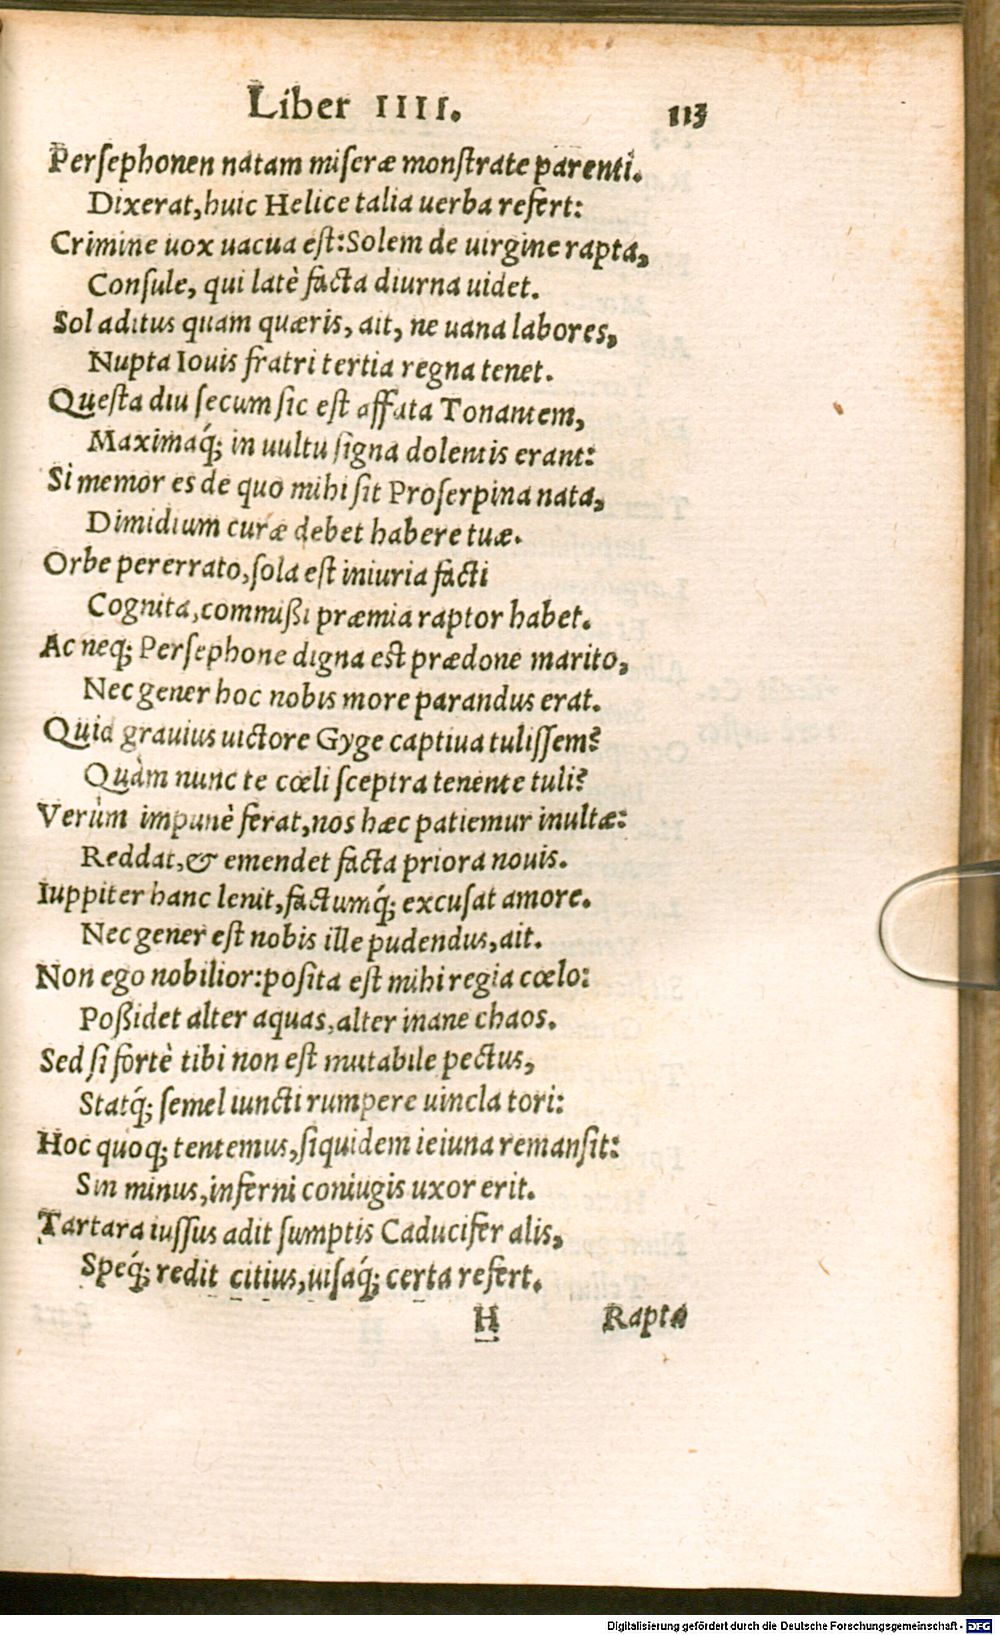 Liber IIII. 113
Persephonen natam miseræ monstrate parenti.
Dixerat, huic Helice talia uerba refert:
Crimine uox uacua est: Solem de uirgine rapta,
Consule, qui latè facta diurna uidet.
Sol aditus quam quæris, ait, ne uana labores,
Nupta Iouis fratri tertia regna tenet.
Questa diu secum sic est affata Tonantem,
Maximaq́; in uultu signa dolentis erant:
Si memor es de quo mihi sit Proserpina nata,
Dimidium curæ debet habere tuæ.
Orbe pererrato, sola est iniuria facti
Cognita, commißi præmia raptor habet.
Ac neq; Persephone digna est prædone marito,
Nec gener hoc nobis more parandus erat.
Quid grauius uictore Gyge captiua tulissem?
Quàm nunc te cœli sceptra tenente tuli?
Verùm impunè ferat, nos hæc patiemur inultæ:
Reddat, & emendet facta priora nouis.
Iuppiter hanc lenit, factumq́; excusat amore.
Nec gener est nobis ille pudendus, ait.
Non ego nobilior: posita est mihi regia cœlo:
Poßidet alter aquas, alter inane chaos.
Sed si fortè tibi non est mutabile pectus,
Statq́; semel iuncti rumpere uincla tori:
Hoc quoq; tentemus, siquidem ieiuna remansit:
Sin minus, inferni coniugis uxor erit.
Tartara iussus adit sumptis Caducifer alis,
Speq́; redit citius, uisaq́; certa refert.
H Rapta
Digitalisierung gefördert durch die Deutsche Forschungsgemeinschaft - DFG